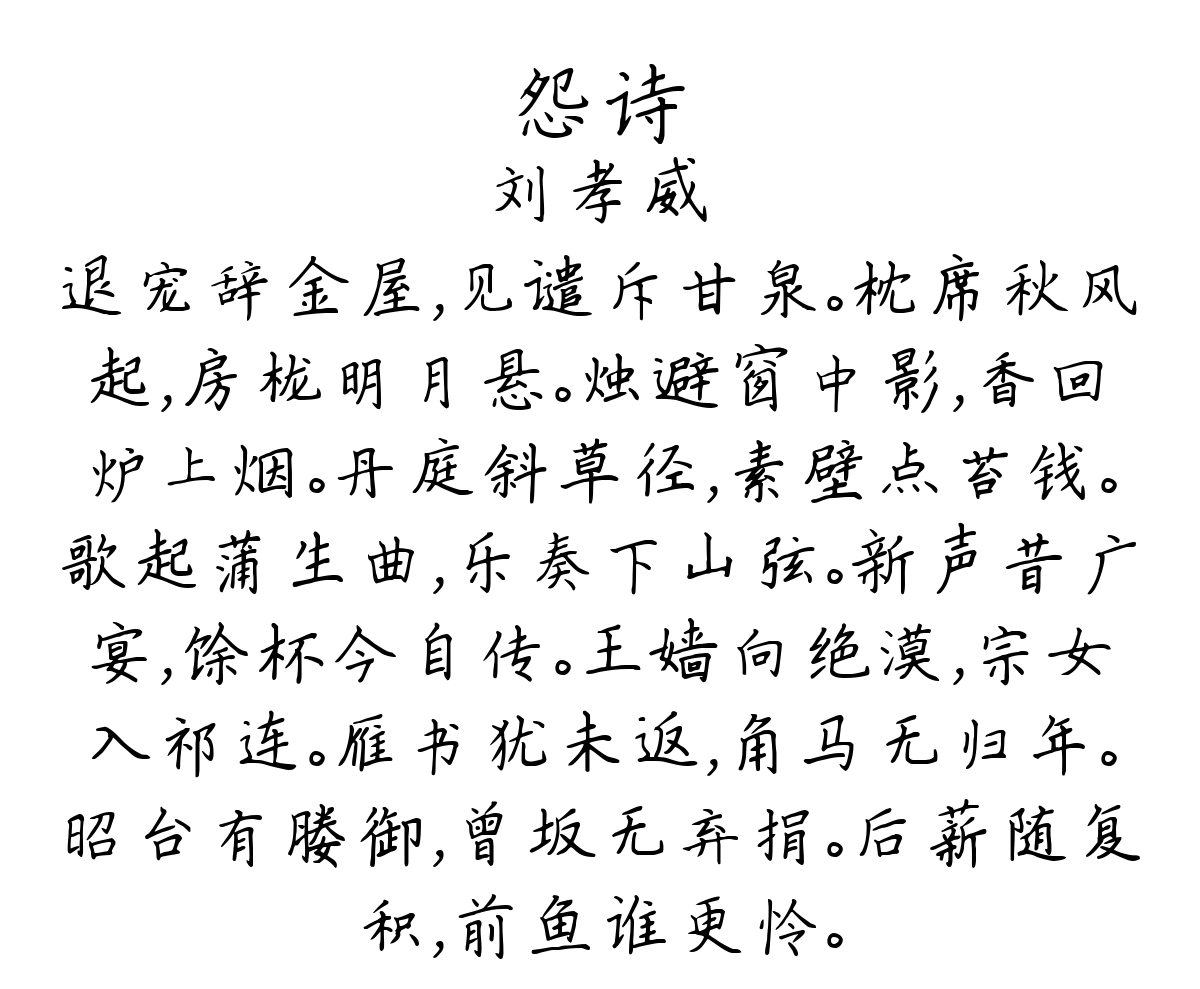 怨诗
刘孝威
退宠辞金屋,见谴斥甘泉。枕席秋风
起,房栊明月悬。烛避窗中影,香回
炉上烟。丹庭斜草径,素壁点苔钱。
歌起蒲生曲,乐奏下山弦。新声昔广
宴,馀杯今自传。王嫱向绝漠,宗女
入祁连。雁书犹未返,角马无归年。
昭台有媵御,曾坂无弃捐。后薪随复
积,前鱼谁更怜。